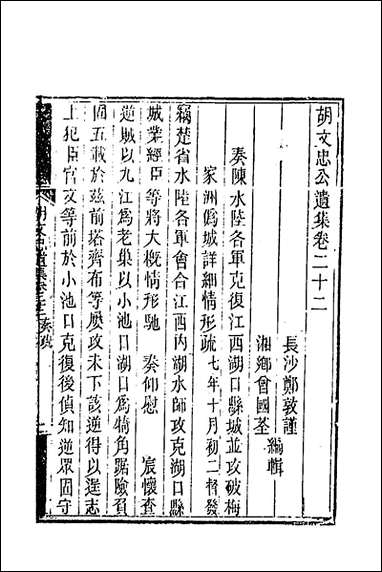 胡文忠公遺集卷二十二
長沙鄭敦謹
湘鄉曾國荃
編輯
奏陳水陸各軍克復江西湖口縣城並攻破梅
家洲僞城詳細情形疏 七年十月初二督發
竊楚省水陸各軍會合江西內湖水師攻克湖口縣
城業經臣等將大槪情形馳 奏仰慰 宸懷查
逆賊以九江爲老巢以小池口湖口爲犄角踞險負
固五載於茲前塔齊布等屢攻未下該逆得以逞志
上犯臣官文等前於小池口克復後偵知逆眾固守